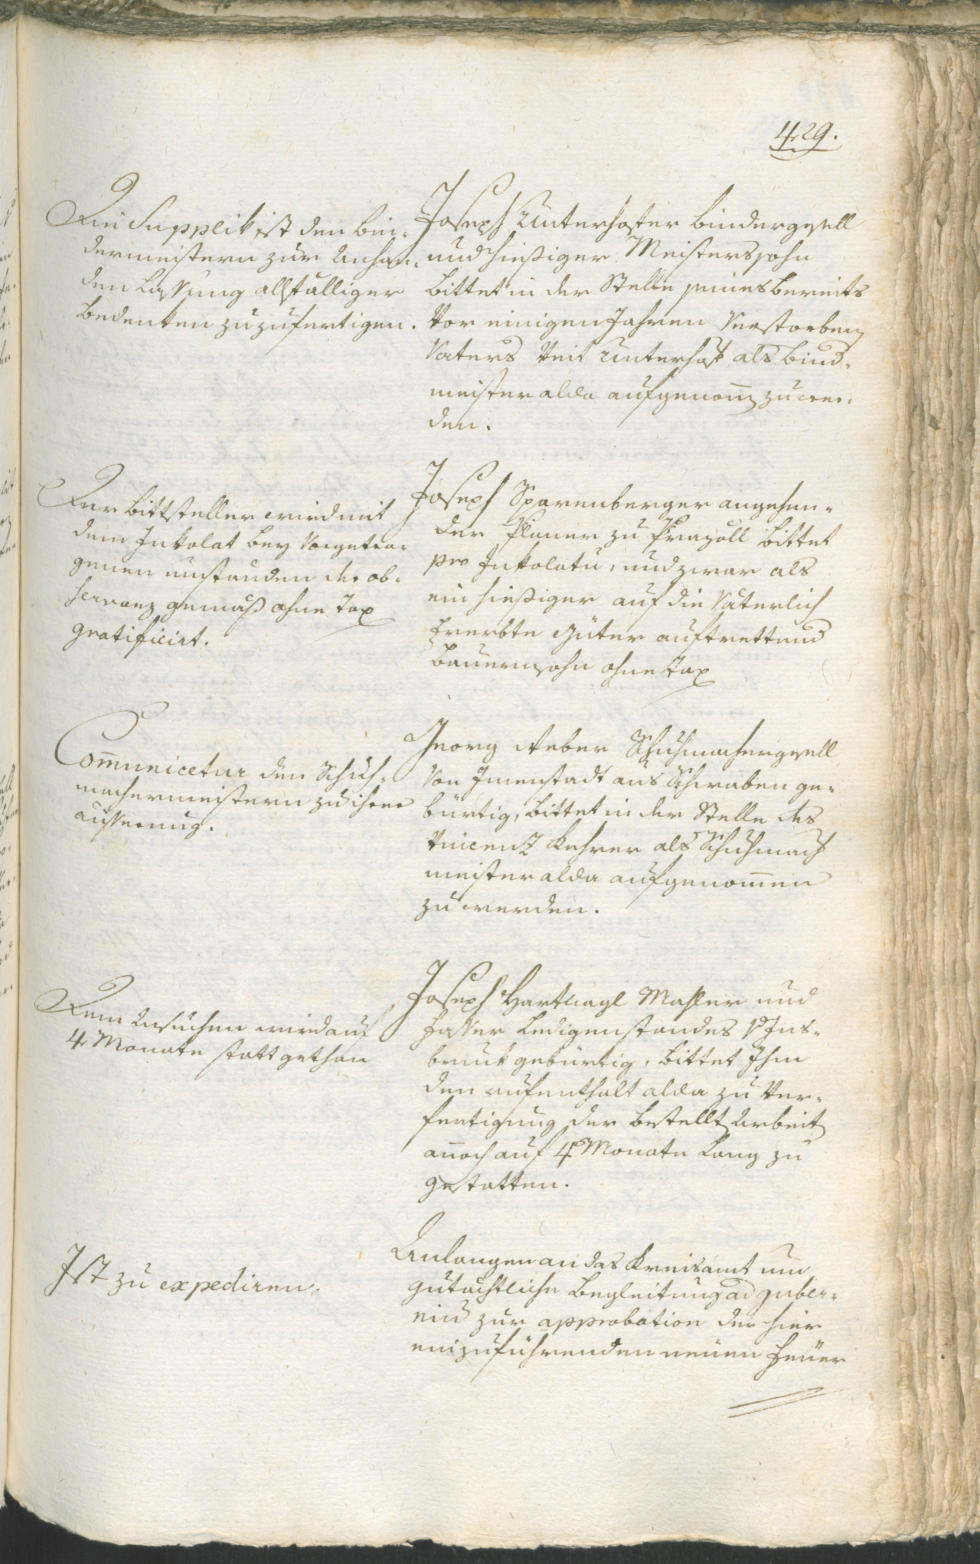 429.
Die Supplik ist den Bin-
dermeistern zur Anhan-
den Lassung allfälliger
Bedenken zuzufertigen.
Joseph Unterhofer Bindergsell
und hießiger Meisterssohn
bittet in der Stelle seines bereits
vor einigen Jahren verstorbenen
Vaters Veit Unterhof. als Bind-
meister alda aufgenom̅en zu wer-
den.
Der Bittsteller wird mit
dem Inkolat bey vorgetra-
genen umständen der ob-
servanz gemäß ohne Tax
gratificirt.
Joseph Sparenberger angehen-
der Planer zu Prazöll bittet
pro Inkolatu, und zwar als
ein hießiger auf die Väterlich
Ererbte Güter auftrettend
Bauernsohn ohne Tax
Com̅unicetur den Schuh-
machermeistern zu ihrer
äusserung.
Georg Aeber Schuhmachergsell
von Imenstadt aus Schwaben ge-
bürtig, bittet in der Stelle des
Vincenz Lehrer als Schuhmach
meister alda aufgenom̅en
zu werden.
Dem Ansuchen wird auf
4 Monate statt gethan
Joseph Hartnagl Mahler und
Fasser ledigen standes v Ins-
bruk gebürtig, bittet Ihm
den aufenthalt alda zu Ver-
fertigung der bestellt Arbeit
an̅och auf 4 Monate lang zu
gestatten.
Ist zu expediren.
Anlangen an das Kreisamt um
gutächtliche Begleitung ad guber-
nium zur approbation der hier
einzuführenden neuen Feüer